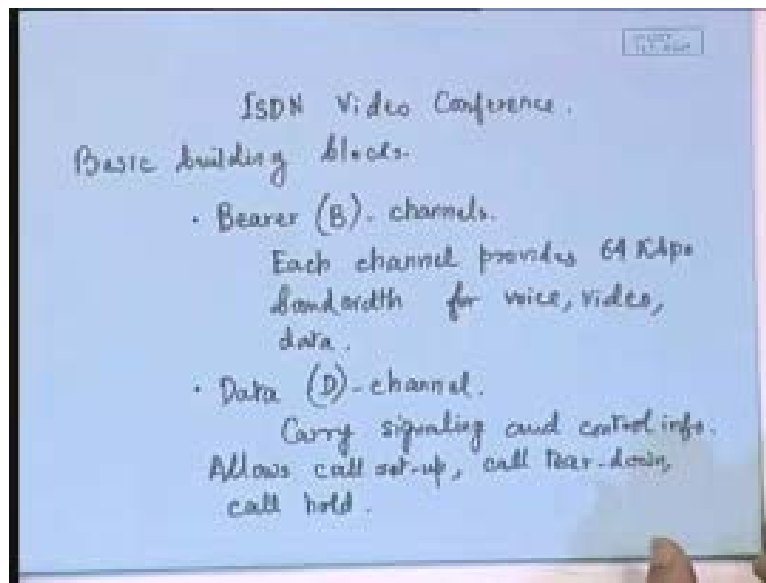 ISDN Video Conference.
Basic building blocks.
• Bearer (B) - channels.
Each channel provides 64 Kbps
bandwidth for voice, video,
data.
• Data (D) - channel.
Carry signaling and control info.
Allows call set-up, call tear-down,
call hold.